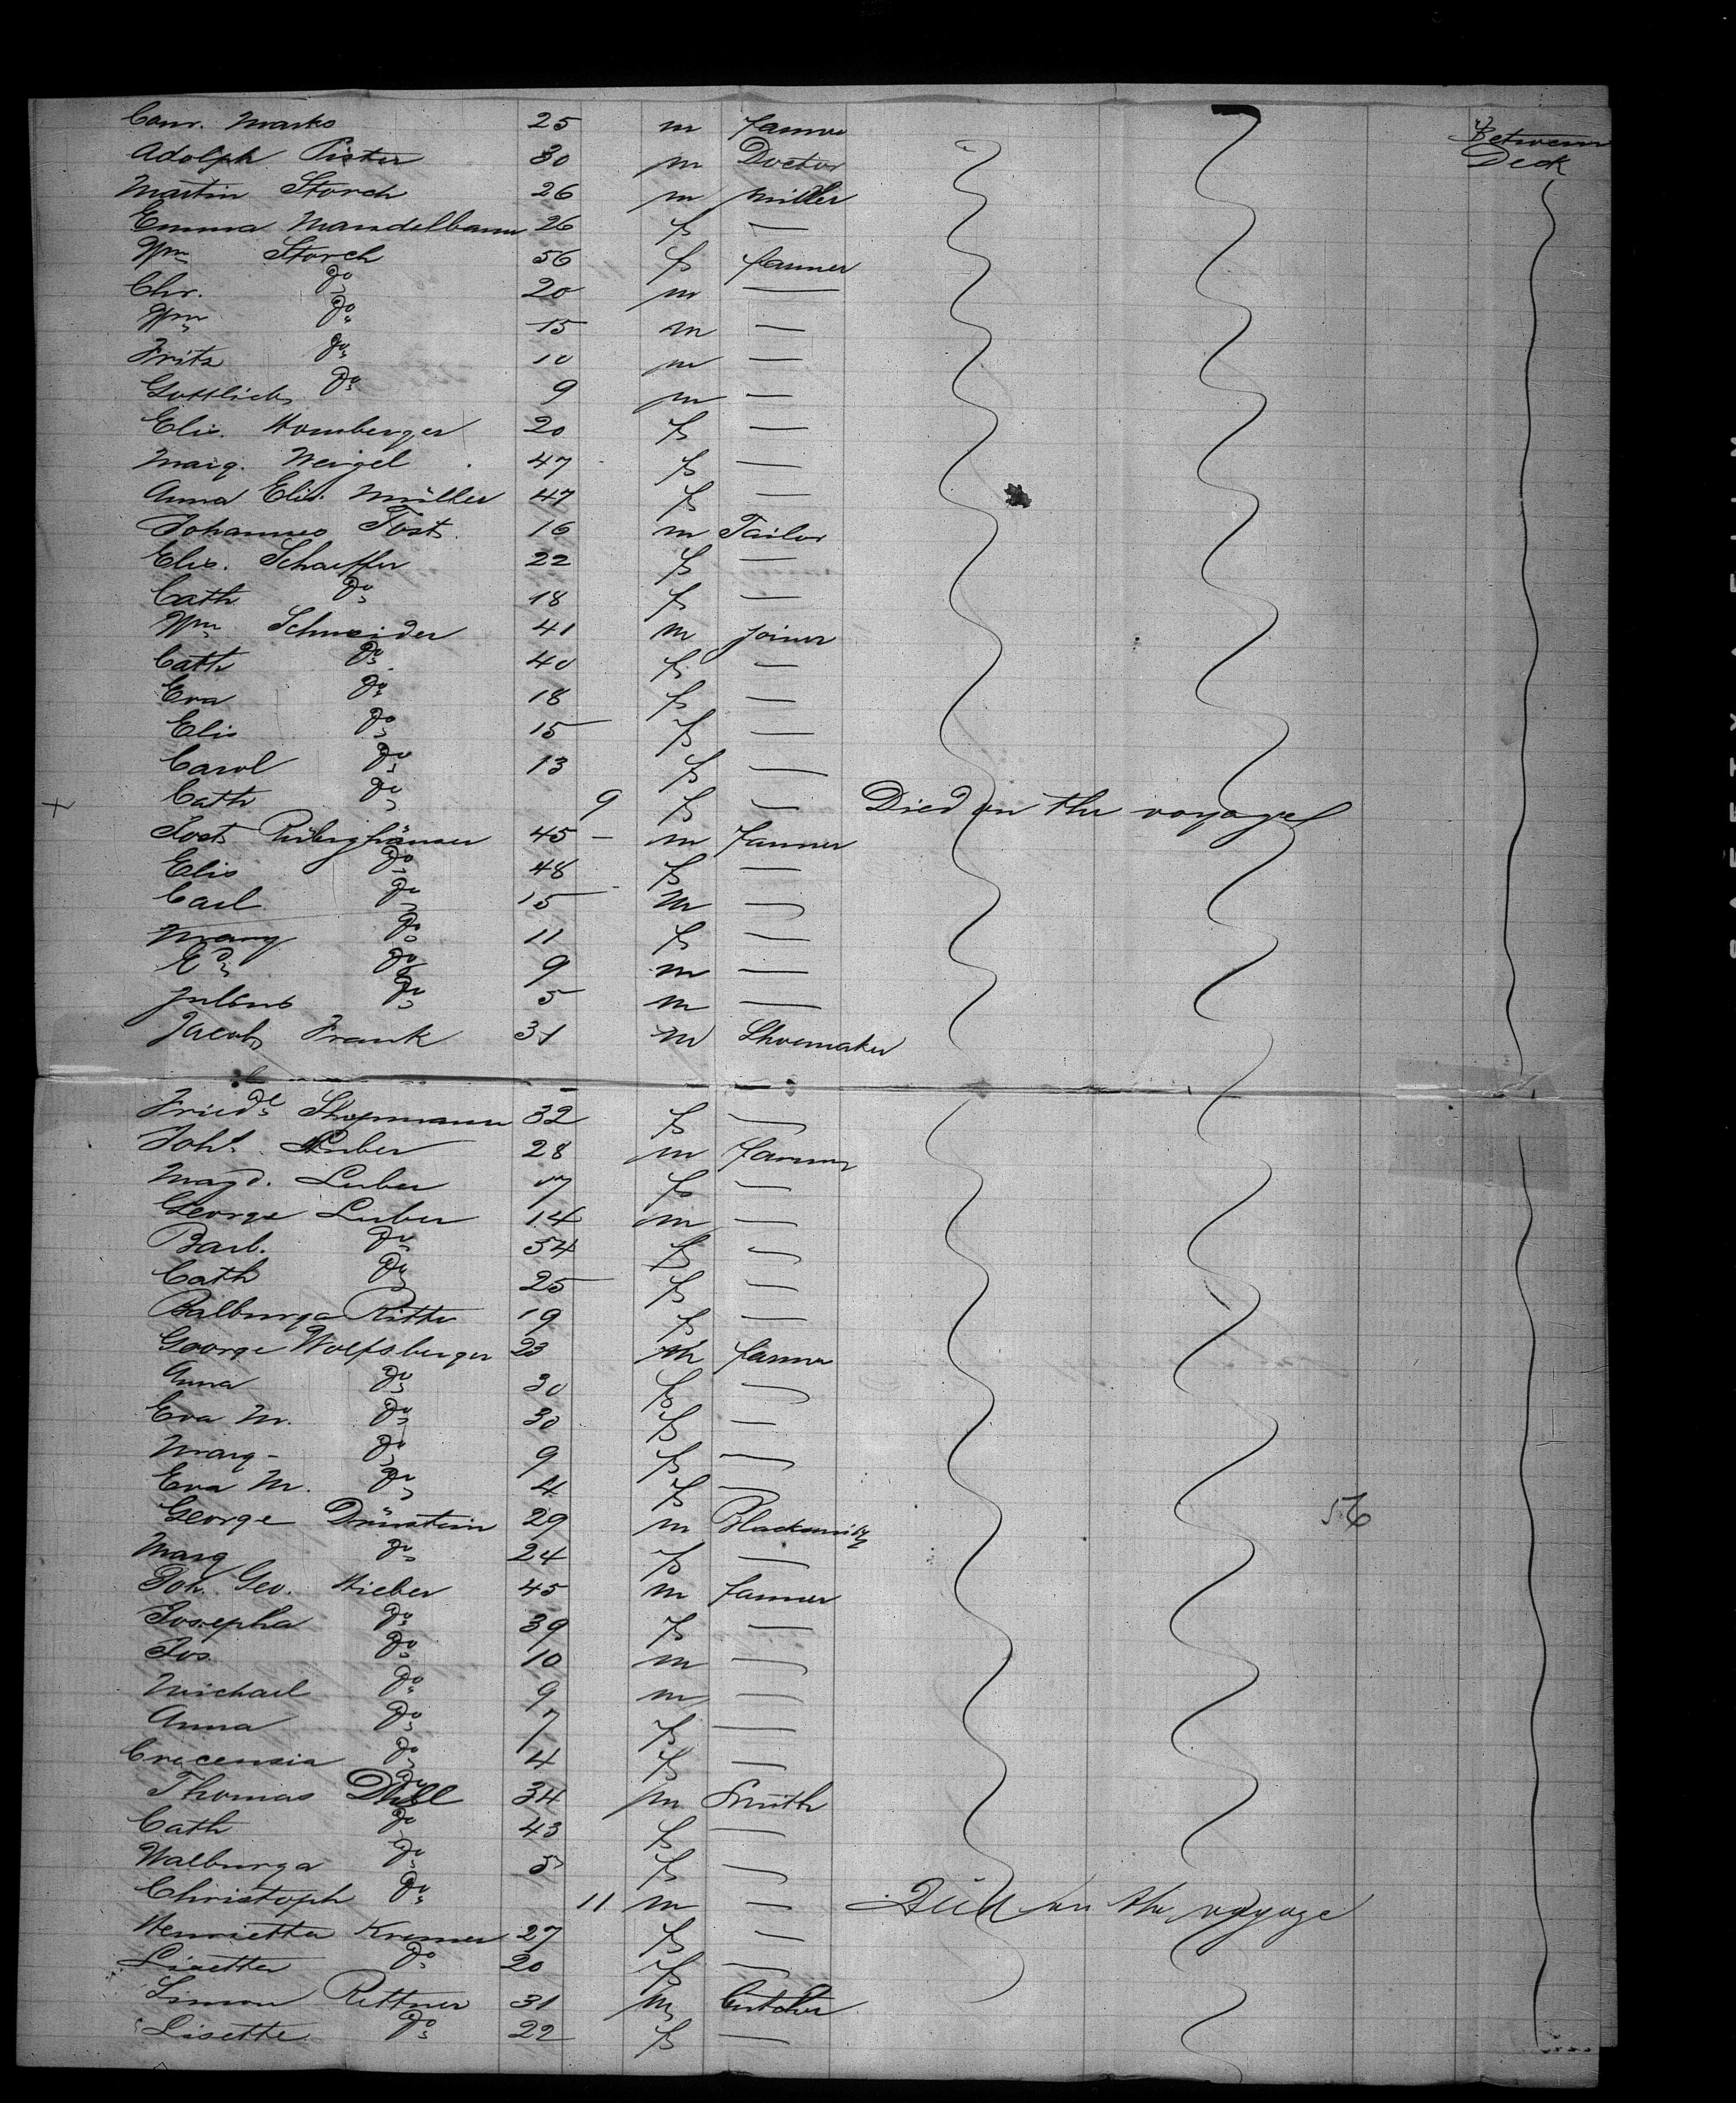 Conr. Marko 25 m farmer Between
Adolph Pister 30 m Doctor Deck
Martin Storch 26 m miller
Emma Mandelbaum 26 f —
Wm Storch 56 f farmer
Chr. do 20 m —
Wm do 15 m —
Fritz do 10 m —
Gottlieb do 9 m —
Elis. Homberger 20 f —
Marg. Weigel 47 f —
Anna Elis. Müller 47 f —
Johannes Jost 16 m Tailor
Elis. Schaeffer 22 f —
Cath do 18 f —
Wm Schneider 41 m joiner
Cath do 40 f —
Eva do 18 f —
Elis do 15 f —
Carol do 13 f —
+ Cath do 9 f — Died on the voyage
Jost 45 — m Farmer
Elis do 48 f —
Carl do 15 m —
Marg do 11 f —
Ed do 9 m —
Julius do 5 m —
Jacob Frank 31 m Shoemaker
Friedke 32 f —
Joh. Luber 28 m Farmer
Magd. Luber 17 f —
George Luber 14 m —
Barb. do 54 f —
Cath do 25 f —
Walburga Ritter 19 f —
George Wolfsberger 23 m farmer
Anna do 30 f —
Eva M. do 30 f —
Marg - do 9 f —
Eva M. do 4 f —
George Drünstein 29 m Blacksmith 56
Marg do 24 f —
Joh. Geo. Hieber 45 m farmer
Josepha do 39 f —
Jos. do 10 m —
Michael do 9 m —
Anna do 7 f —
Crecensia do 4 f —
Thomas 34 m Smith
Cath do 43 f —
Walburga do 5 f —
Christoph do 11 m — Died on the voyage
Henrietta Kremer 27 f —
Lisetta do 20 f —
Simon Rettner 31 m Butcher
Lisette do 22 f —